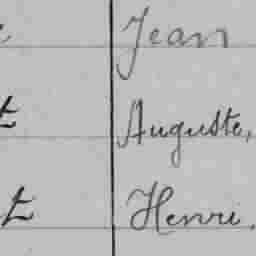 Jean
t Auguste,
t Henri.